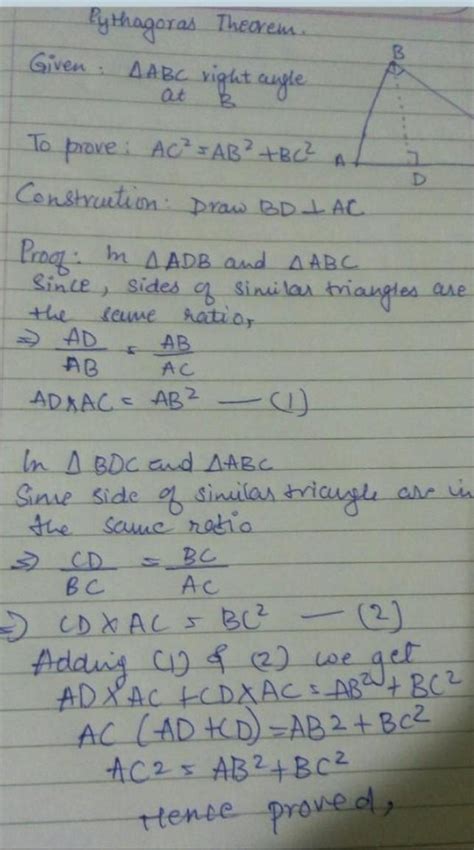 Pythagoras Theorem.
Given: △ABC right angle
at B
To prove: AC² = AB² + BC²
Construction: Draw BD ⊥ AC
B
A
D
Proof: In △ADB and △ABC
Since, sides of similar triangles are
the same ratio,
⇒ AD/AB = AB/AC
AD×AC = AB² — (1)
In △ BDC and △ABC
Sinse side of similar triangle are in
the same ratio
⇒ CD/BC = BC/AC
⇒ CD×AC = BC² — (2)
Adding (1) & (2) we get
AD×AC + CD×AC = AB² + BC²
AC (AD+CD) = AB2 + BC²
AC2 = AB² + BC²
Hence proved,